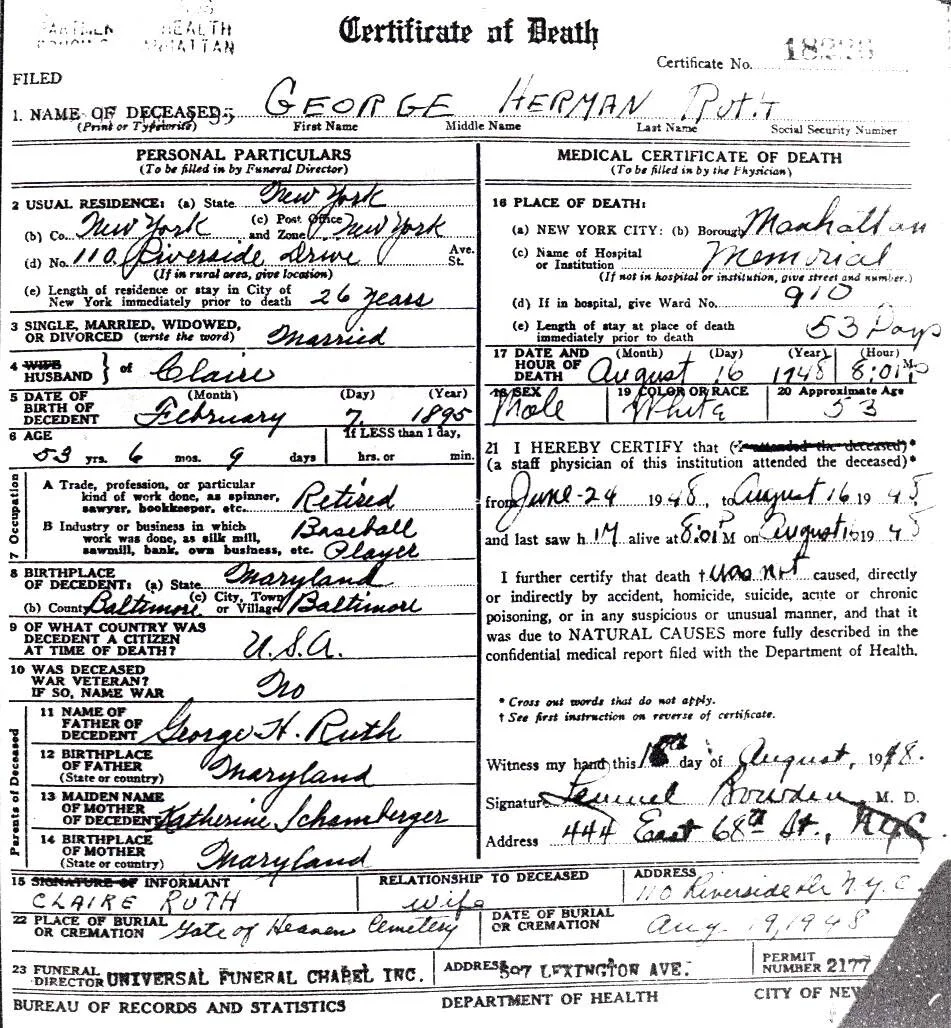 HEALTH
Certificate of Death
Certificate No.
FILED
1. NAME OF DECEASED GEORGE HERMAN RUTH
(Print or Typewrite) First Name Middle Name Last Name Social Security Number
PERSONAL PARTICULARS
(To be filled in by Funeral Director)
2 USUAL RESIDENCE: (a) State New York
(b) Co. New York (c) Post Office and Zone New York
(d) No. 110 Riverside Drive Ave. St.
(If in rural area, give location)
(e) Length of residence or stay in City of
New York immediately prior to death 26 Years
3 SINGLE, MARRIED, WIDOWED,
OR DIVORCED (write the word) Married
4 WIFE
HUSBAND } of Claire
5 DATE OF (Month) (Day) (Year)
BIRTH OF
DECEDENT February 7, 1895
6 AGE If LESS than 1 day,
53 yrs. 6 mos. 9 days hrs. or min.
7 Occupation
A Trade, profession, or particular
kind of work done, as spinner,
sawyer, bookkeeper, etc. Retired
B Industry or business in which Baseball
work was done, as silk mill,
sawmill, bank, own business, etc. Player
8 BIRTHPLACE
OF DECEDENT: (a) State Maryland
(b) County Baltimore (c) City, Town or Village Baltimore
9 OF WHAT COUNTRY WAS
DECEDENT A CITIZEN
AT TIME OF DEATH? U.S.A.
10 WAS DECEASED
WAR VETERAN?
IF SO, NAME WAR No
Parents of Deceased
11 NAME OF
FATHER OF
DECEDENT George H. Ruth
12 BIRTHPLACE
OF FATHER
(State or country) Maryland
13 MAIDEN NAME
OF MOTHER
OF DECEDENT Katherine Schamberger
14 BIRTHPLACE
OF MOTHER
(State or country) Maryland
MEDICAL CERTIFICATE OF DEATH
(To be filled in by the Physician)
16 PLACE OF DEATH:
(a) NEW YORK CITY: (b) Borough Manhattan
(c) Name of Hospital
or Institution Memorial
(If not in hospital or institution, give street and number.)
(d) If in hospital, give Ward No. 910
(e) Length of stay at place of death
immediately prior to death 53 Days
17 DATE AND (Month) (Day) (Year) (Hour)
HOUR OF
DEATH August 16 1948 8:01 M
18 SEX 19 COLOR OR RACE 20 Approximate Age
Male White 53
21 I HEREBY CERTIFY that (I attended the deceased)*
(a staff physician of this institution attended the deceased)*
from June-24 1948, to August 16 1948
and last saw h im alive at 8:01 P M on August 16 1948
I further certify that death † was not caused, directly
or indirectly by accident, homicide, suicide, acute or chronic
poisoning, or in any suspicious or unusual manner, and that it
was due to NATURAL CAUSES more fully described in the
confidential medical report filed with the Department of Health.
* Cross out words that do not apply.
† See first instruction on reverse of certificate.
Witness my hand this day of August, 1948.
Signature Lemuel Bowden M. D.
Address 444 East 68th St., NYC
15 SIGNATURE OF INFORMANT RELATIONSHIP TO DECEASED ADDRESS
CLAIRE RUTH wife 110 Riverside Dr N.Y.C.
22 PLACE OF BURIAL
OR CREMATION Gate of Heaven Cemetery DATE OF BURIAL
OR CREMATION Aug 19, 1948
23 FUNERAL
DIRECTOR UNIVERSAL FUNERAL CHAPEL INC. ADDRESS 597 LEXINGTON AVE. PERMIT
NUMBER 2177
BUREAU OF RECORDS AND STATISTICS DEPARTMENT OF HEALTH CITY OF NEW